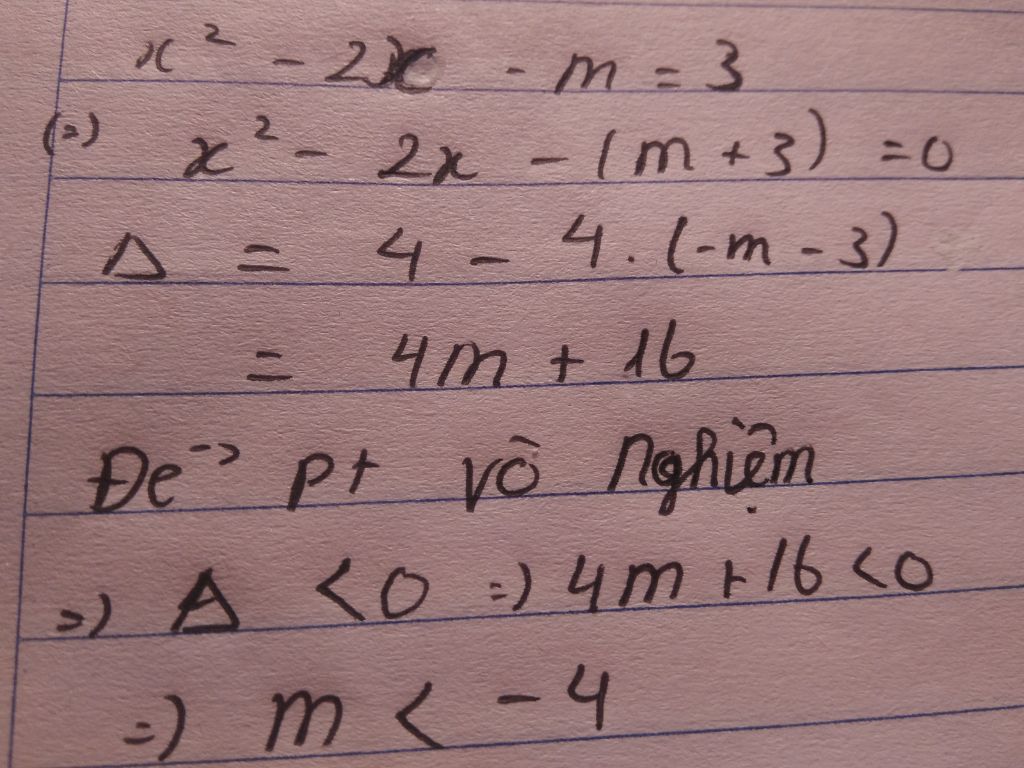 x² - 2x - m = 3
(=) x² - 2x - (m + 3) = 0
Δ = 4 - 4 . (-m - 3)
= 4m + 16
Để pt vô nghiệm
=) Δ < 0 =) 4m + 16 < 0
=) m < - 4